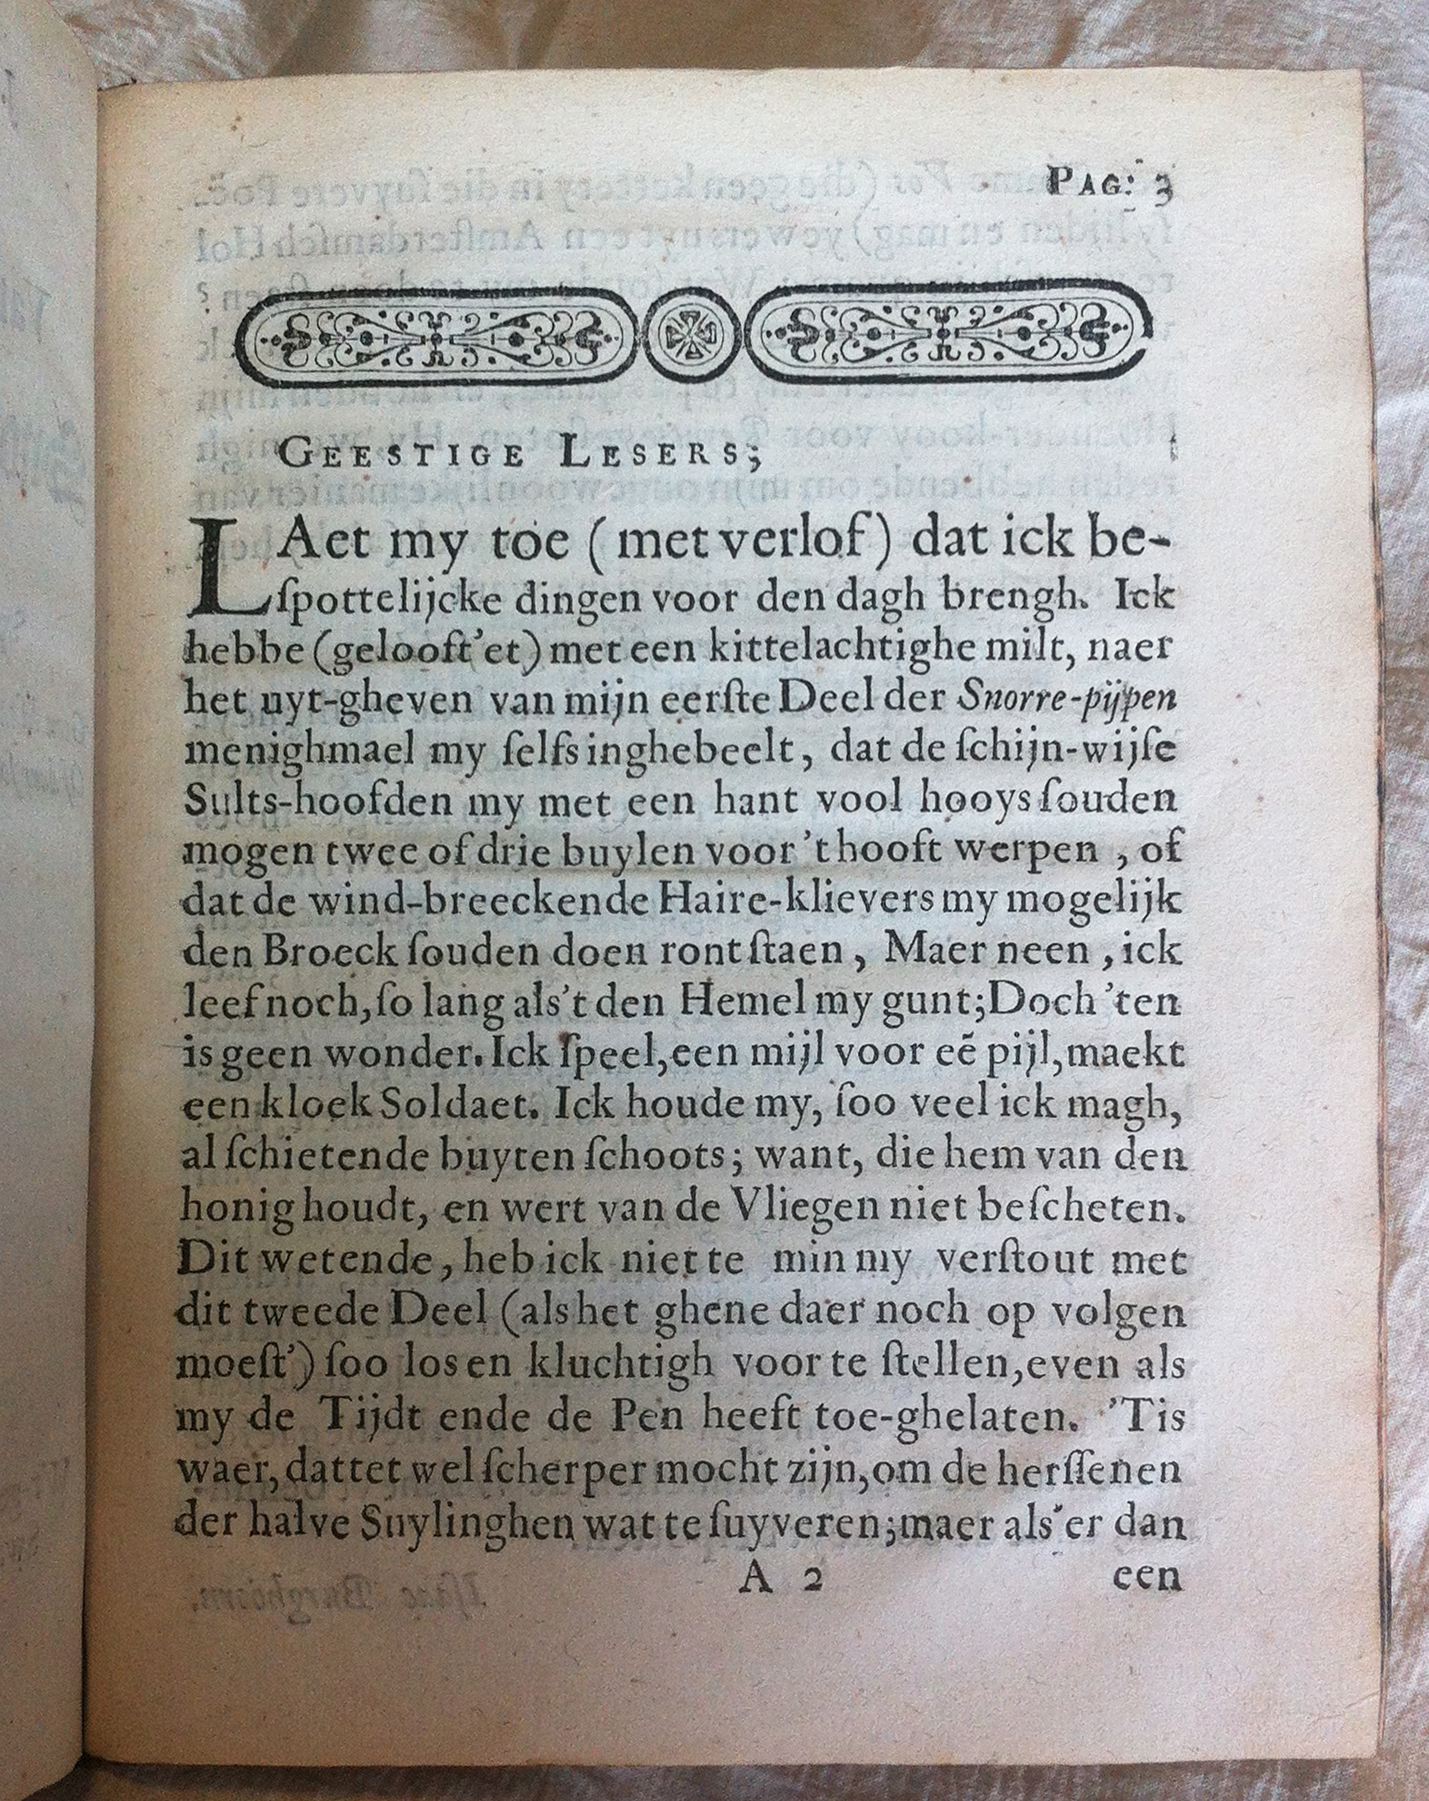 PAG: 3
GEESTIGE LESERS;
LAet my toe (met verlof) dat ick be-
ſpottelijcke dingen voor den dagh brengh. Ick
hebbe (gelooft'et) met een kittelachtighe milt, naer
het uyt-gheven van mijn eerſte Deel der Snorre-pijpen
menighmael my ſelfs inghebeelt, dat de ſchijn-wijſe
Sults-hoofden my met een hant vool hooys ſouden
mogen twee of drie buylen voor 't hooft werpen, of
dat de wind-breeckende Haire-klievers my mogelijk
den Broeck ſouden doen ront ſtaen, Maer neen, ick
leef noch, ſo lang als't den Hemel my gunt; Doch 'ten
is geen wonder. Ick ſpeel, een mijl voor eẽ pijl, maekt
een kloek Soldaet. Ick houde my, ſoo veel ick magh,
al ſchietende buyten ſchoots; want, die hem van den
honig houdt, en wert van de Vliegen niet beſcheten.
Dit wetende, heb ick niet te min my verſtout met
dit tweede Deel (als het ghene daer noch op volgen
moeſt') ſoo los en kluchtigh voor te ſtellen, even als
my de Tijdt ende de Pen heeft toe-ghelaten. 'Tis
waer, dattet wel ſcherper mocht zijn, om de herſſenen
der halve Suylinghen wat te ſuyveren; maer als'er dan
A 2 een